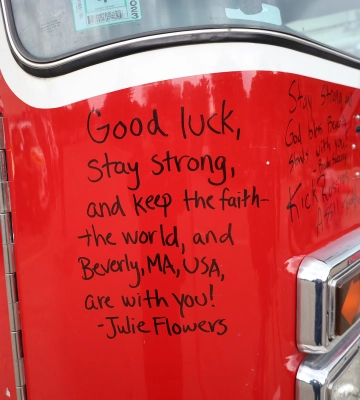 Good luck,
stay strong,
and keep the faith-
the world, and
Beverly, MA, USA,
are with you!
-Julie Flowers
Stay strong
God bless
with you
Kick